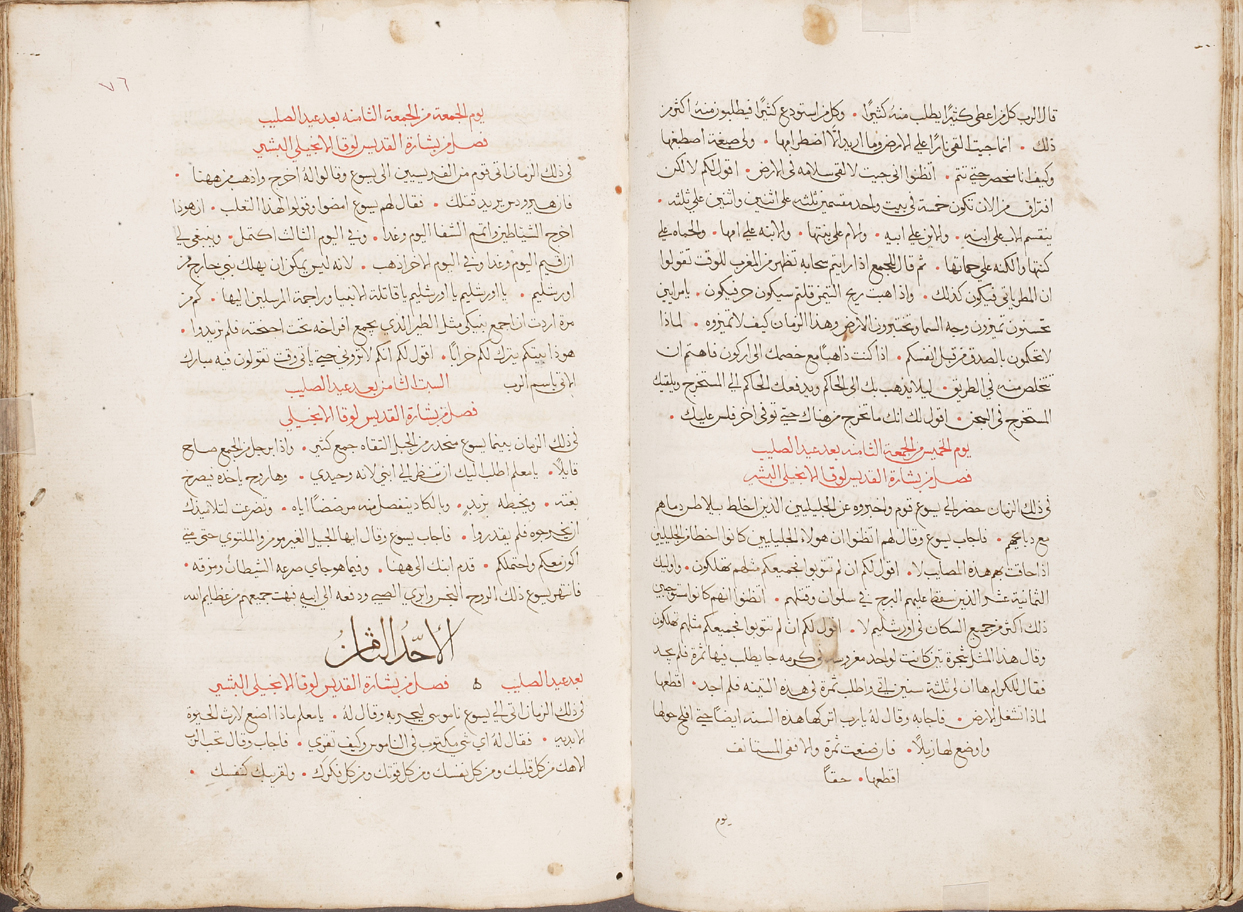 قال الرب كل من اعطي كثيرًا يطلب منهُ كثيرًا • وكل من استودع كثيرًا فيطلبون منهُ اكثر من
ذلك • انما جيت القي نارًا علي الارض وما اريد الّا اضطرامها • ولي صبغة اصطبغها
وكيف انا منحصر حتي تتم • اتظنوا اني جيت لالقي سلامه في الارض • اقول لكم لا لكن
افتراق من الان تكون خمسة في بيت واحد مقسمين ثلثه علي اثنين واثنين علي ثلثه •
ينقسم الاب علي ابنه • والابن علي ابيه • والام علي بنتها • والابنه علي امها • والحماه علي
كنتها والكنه علي حماتها • ثم قال للجمع اذا رايتم سحابه تظهر من المغرب للوقت تقولوا
ان المطر ياتي فيكون كذلك • واذا هبت ريح التيمن قلتم سيكون حر فيكون • يا مرايين
تحسنون تميزون وجه السما وتختبرون الارض وهذا الزمان كيف لا تميزوه • لماذا
لا تحكمون بالصدق من قبل انفسكم • اذا كنت ذاهبًا مع خصمك الي اركون فاهتم ان
تتخلص منه في الطريق • ليلا يذهب بك الي الحاكم ويدفعك الحاكم الي المستخرج ويلقيك
المستخرج في السجن • اقول لك انك ما تخرج من هناك حتي توفي اخر فلس عليك •
يوم الخميس من الجمعة الثامنه بعد عيد الصليب
فصل من بشارة القديس لوقا الانجيلي البشير
في ذلك الزمان حضر الي يسوع قوم واخبروه عن الجليليين الذين اخلط بيلاطس دماهم
مع ذبايحهم • فاجاب يسوع وقال لهم اتظنوا ان هولا الجليليين كانوا اخطا من الجليليين
اذا حاقت بهم هذه المصايب لا • اقول لكم ان لم تتوبوا فجميعكم مثلهم تهلكون • واوليك
الثمانية عشر الذين سقط عليهم البرج في سلوان وقتلهم • اتظنوا انهم كانوا مستوجبين
ذلك اكثر من جميع السكان في اورشليم لا • اقول لكم ان لم تتوبوا فجميعكم مثلهم تهلكون
وقال هذا المثل شجرة تين كانت لواحد مغروسة في كرمه جا يطلب فيها ثمرة فلم يجد
فقال للكرام ها ان لي ثلثة سنين اتي واطلب ثمرة في هذه التينه فلم اجد • اقطعها
لماذا تشغل الارض • فاجابه وقال لهُ يا رب اتركها هذه السنه ايضًا حتي افلح حولها
واوضع لها زبلًا • فان صنعت ثمرة والا ففي المستانف
اقطعها • حقًا
يوم
٧٦
يوم الجمعة من الجمعة الثامنه بعد عيد الصليب
فصل من بشارة القديس لوقا الانجيلي البشير
في ذلك الزمان اتي قوم من الفريسيين الي يسوع وقالوا لهُ اخرج واذهب من ههنا •
فان هيرودس يريد قتلك • فقال لهم يسوع امضوا وقولوا لهذا الثعلب • ان هوذا
اخرج الشياطين واتمم الشفا اليوم وغدا • وفي اليوم الثالث اكتمل • وينبغي لي
ان اقيم اليوم وغدا وفي اليوم الاخر اذهب • لانه ليس يمكن ان يهلك نبي خارج من
اورشليم • يا اورشليم يا اورشليم يا قاتلة الانبيا وراجمة المرسلين اليها • كم من
مرة اردت ان اجمع بنيكي مثل الطير الذي يجمع افراخه تحت اجنحته فلم تريدوا •
هوذا بيتكم يترك لكم خرابًا • اقول لكم انكم لا تروني حتي ياتي وقت تقولون فيه مبارك
الاتي باسم الرب السبت الثامن بعد عيد الصليب
فصل من بشارة القديس لوقا الانجيلي
في ذلك الزمان بينما يسوع منحدر من الجبل التقاه جمع كثير • واذا برجل من الجمع صاح
قايلًا • يا معلم اطلب اليك ان تنظر الي ابني لانه وحيدي • وها روح ياخذه فيصرخ
بغته • ويخبطه بزبدٍ • وبالكاد ينفصل منه مرضضًا اياه • وتضرعت لتلاميذك
ان يخرجوه فلم يقدروا • فاجاب يسوع وقال ايها الجيل الغير مومن والملتوي حتي متي
اكون معكم واحتملكم • قدم ابنك الي ههنا • وفيما هو جاي صرعه الشيطان ومزقه •
فانتهر يسوع ذلك الروح النجس وابري الصبي ودفعه الي ابيه فبهت جميعهم من عظايم الله
الأحدُ الثامنُ
بعد عيد الصليب ۵ فصل من بشارة القديس لوقا الانجيلي البشير
في ذلك الزمان اتي الي يسوع ناموسي ليجربه وقال لهُ • يا معلم ماذا اصنع لارث الحيوة
الابديه • فقال لهُ اي شي مكتوب في الناموس وكيف تقري • فاجاب وقال تحب الرب
الاهك من كل قلبك ومن كل نفسك ومن كل قوتك ومن كل فكرك • ولقريبك كنفسك •